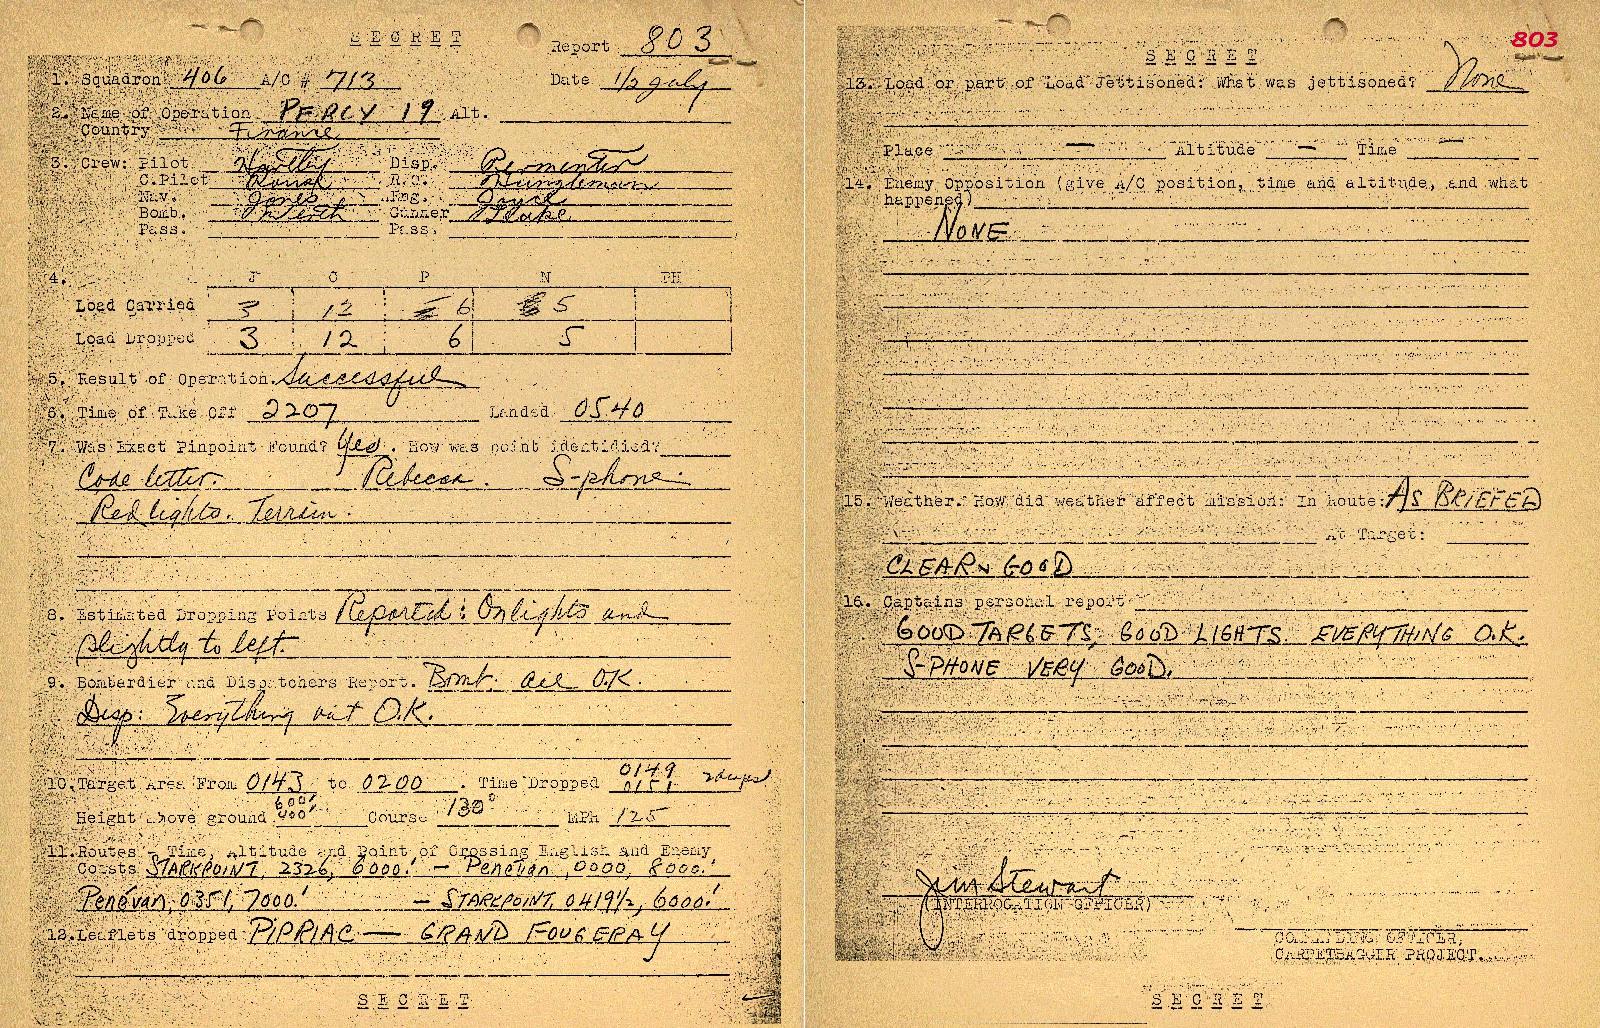 SECRET
Report 803
1. Squadron 406 A/C # 713 Date 1/2 July
2. Name of Operation PERCY 19 Alt.
Country France
3. Crew: Pilot Disp. Permenter
C.Pilot R.O.
Nav. Jones Eng.
Bomb. Gunner
Pass. Pass.
4. J C P N PH
Load Carried 3 12 6 5
Load Dropped 3 12 6 5
5. Result of Operation. Successful
6. Time of Take Off 2207 Landed 0540
7. Was Exact Pinpoint Found? Yes. How was point identidied?
Code letter. Rebecca. S-phone.
Red lights. Terrain.
8. Estimated Dropping Points Reported: On lights and
slightly to left.
9. Bombardier and Dispatchers Report. Bomb. all O.K.
Disp: Everything out O.K.
10. Target Area From 0143 to 0200. Time Dropped 0149 0151 2 drops
Height above ground 600' 400' Course 130° MPH 125
11. Routes - Time, Altitude and Point of Crossing English and Enemy
Coasts STARKPOINT, 2326, 6000.' - Penévan, 0000, 8000.'
Penévan, 0351, 7000.' - STARKPOINT, 0419½, 6000.'
12. Leaflets dropped PIPRIAC — GRAND FOUGERAY
SECRET
803
SECRET
13. Load or part of Load Jettisoned: What was jettisoned? None
Place — Altitude — Time —
14. Enemy Opposition (give A/C position, time and altitude, and what
happened)
NONE
15. Weather. How did weather affect mission: In Route: AS BRIEFED
At Target:
CLEAR & GOOD
16. Captains personal report
GOOD TARGETS, GOOD LIGHTS. EVERYTHING O.K.
S-PHONE VERY GOOD.
Jim Stewart
(INTERROGATION OFFICER)
COMMANDING OFFICER,
CARPETBAGGER PROJECT.
SECRET